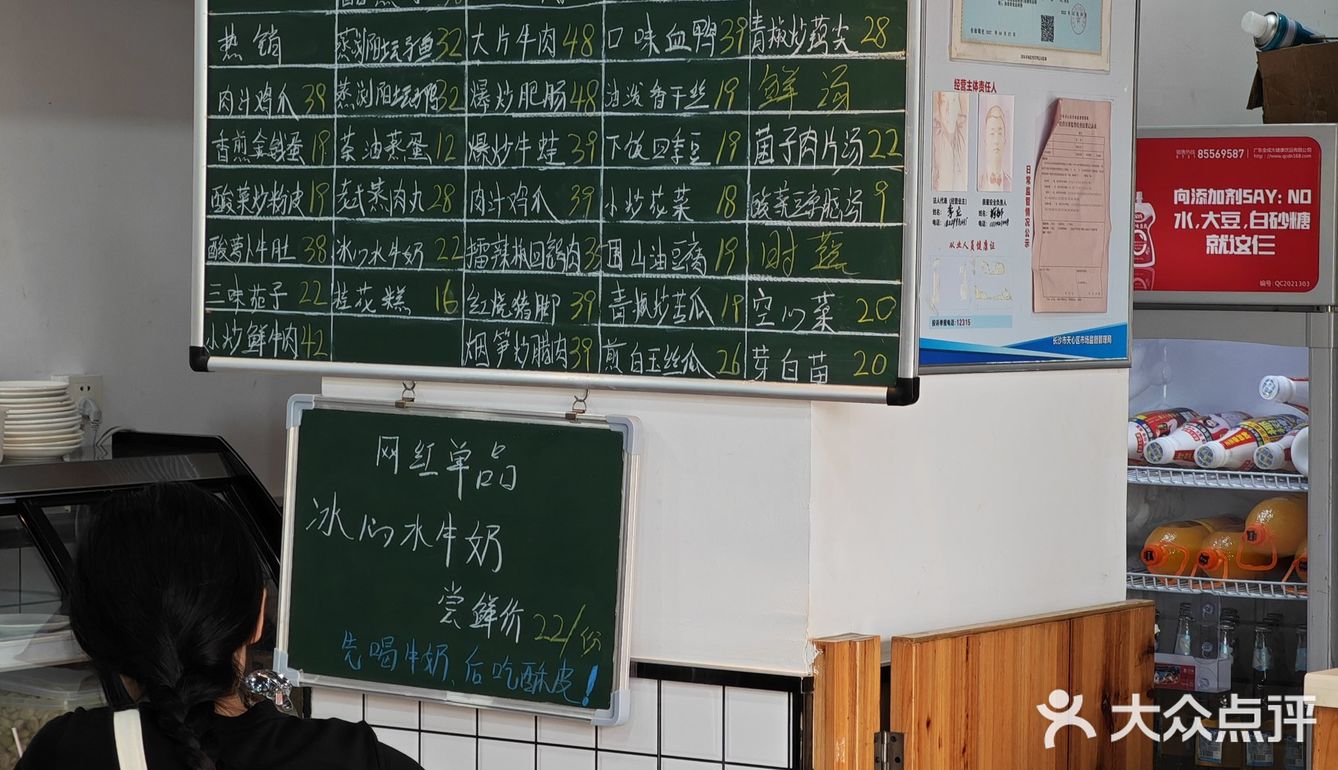 热销
蒸浏阳坛子鱼 32
大片牛肉 48
口味血鸭 39
青椒炒藕尖 28
肉汁鸡爪 39
蒸浏阳坛子鸭 32
爆炒肥肠 48
油泼香干丝 19
鲜汤
香煎金钱蛋 19
茶油蒸蛋 12
爆炒牛蛙 39
下饭四季豆 19
菌子肉片汤 22
酸菜炒粉皮 19
蒸肉丸 28
肉汁鸡爪 39
小炒花菜 18
酸菜豆腐汤 9
酸萝卜牛肚 38
冰心水牛奶 22
擂辣椒回锅肉
围山油豆腐 19
时蔬
三味茄子 22
桂花糕 16
红烧猪脚 39
青椒炒苦瓜 19
空心菜 20
小炒鲜牛肉 42
烟笋炒腊肉 39
煎白玉丝瓜 26
芽白苗 20
网红单品
冰心水牛奶
尝鲜价 22/份
先喝牛奶、后吃酥皮!
经营主体责任人
日常监管情况公示
从业人员健康证
投诉举报电话:12315
长沙市天心区市场监督管理局
85569587
http://www.qcdn168.com
向添加剂SAY: NO
水,大豆,白砂糖
就这仨
编号:QC2021303
大众点评